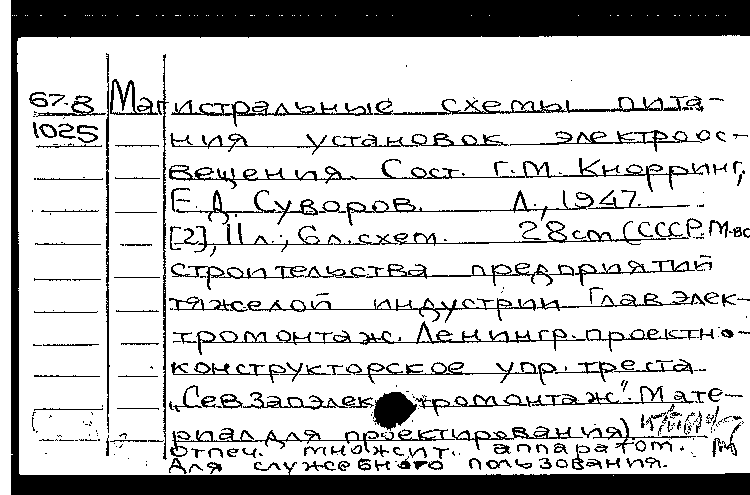 67-8 Магистральные схемы пита-
1025 ния установок электроос-
вещения. Сост. Г.М. Кнорринг,
Е.Д. Суворов. Л., 1947.
[2], 11 л.; 6 л. схем. 28 см (СССР. М-во
строительства предприятий
тяжелой индустрии Главэлек-
тромонтаж. Ленингр. проектно-
конструкторское упр. треста
„Севзапэлектромонтаж". Мате-
риал для проектирования)
Отпеч. множит. аппаратом.
Для служебного пользования.